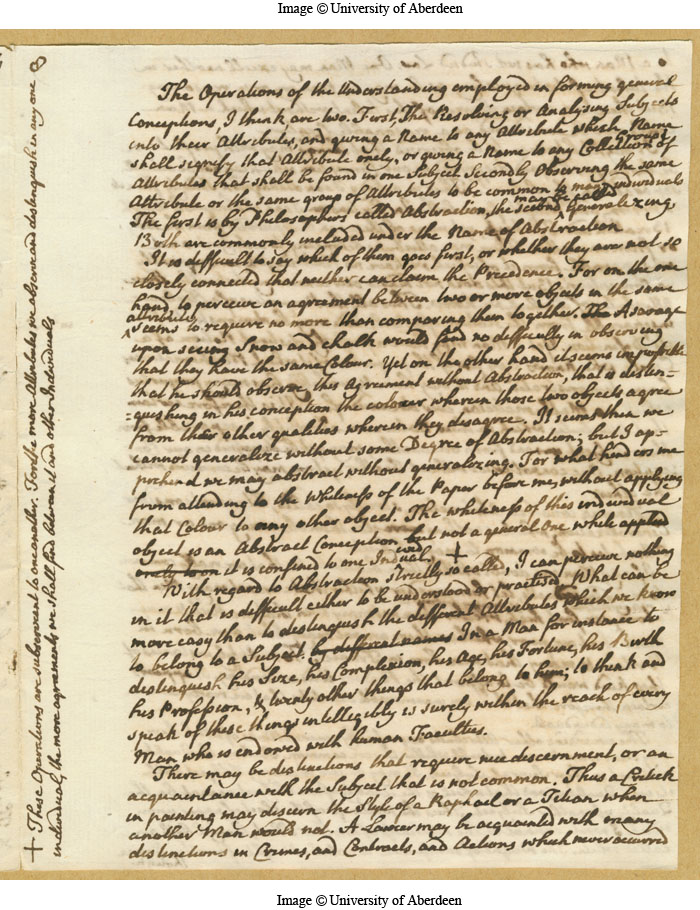 Image © University of Aberdeen
8
The Operations of the Understanding employed in forming general
Conceptions, I think are two. First, The Resolving or Analysing Subjects
into their Attributes, and giving a Name to any Attribute which Name
shall signify that Attribute onely, or giving a Name to any Collection Group of
Attributes that shall be found in one Subject. Secondly Observing the same
Attribute or the same group of Attributes to be common to many individuals
The first is by Philosophers called Abstraction, the second may be called generalizing
Both are commonly included under the Name of Abstraction
It is difficult to say which of them goes first, or whether they are not so
closely connected that neither can claim the Precedence. For on the one
hand to perceive an agreement between two or more objects in the same
attribute
seems to require no more than comparing them together. The A savage
upon seeing Snow and chalk would find no difficulty in observing
that they have the same Colour. Yet on the other hand it seems impossible
that he should observe this Agreement without Abstraction, that is distin=
=guishing in his conception the colour wherein those two objects agree
from their other qualities wherein they disagree. It seems then we
cannot generalize without some Degree of Abstraction; but I ap-
prehend we may abstract without generalizing. For what hinders me
from attending to the Whiteness of the Paper before me, without applying
that Colour to any other object. The whiteness of this individual
object is an Abstract Conception but not a general one while applied
onely to on it is confined to one Individual. +
With regard to Abstraction strictly so called, I can perceive nothing
in it that is difficult either to be understood or practised. What can be
more easy than to distinguish the different Attributes which we know
to belong to a Subject. by different names In a Man for instance to
distinguish his Size, his Complexion, his Age, his Fortune, his Birth
his Profession, & twenty other things that belong to him; to think and
speak of these things intelligibly is surely within the reach of every
Man who is endowed with human Faculties.
There may be distinctions that require nice discernment, or an
acquaintance with the Subject that is not common. Thus a Critick
in painting may discern the Style of a Raphael or a Titian when
another Man would not. A Lawier may be acquainted with many
distinctions in Crimes, and Contracts, and Actions which never occurred
+ These Operations are subservient to one another. For the more Attributes we observe and distinguish in any one
individual, the more agreements we shall find between it and other Individuals
Image © University of Aberdeen